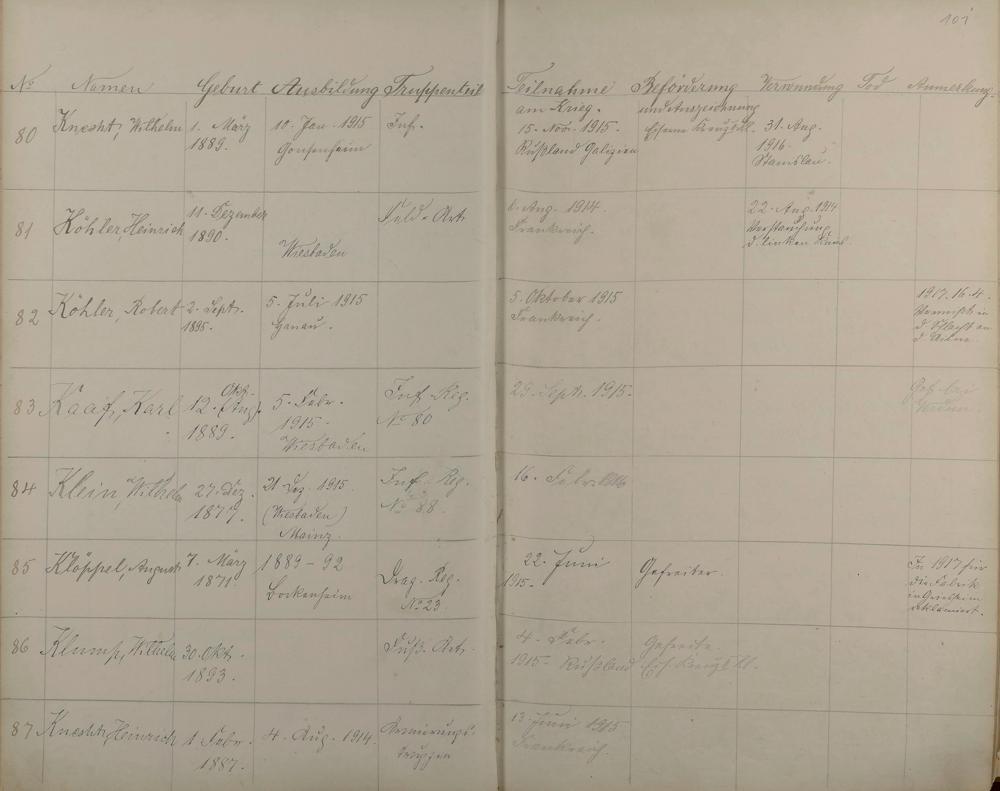 101
No Namen Geburt Ausbildung Truppenteil Teilnahme am Krieg. Beförderung und Auszeichnung Verwundung Tod Anmerkung.
80 Knecht, Wilhelm 1. März 1889. 10. Jan. 1915 Gonsenheim Inf. 15. Nov. 1915. Rußland Galizien Eiserne Kreuz II. 31. Aug. 1916. Stanislau.
81 Köhler, Heinrich 11. Dezember 1890. Wiesbaden Feld-Art. 6. Aug. 1914. Frankreich. 22. Aug. 1914 Verstauchung d. linken
82 Köhler, Robert 2. Sept. 1895. 5. Juli 1915 Hanau. 5. Oktober 1915 Frankreich. 1917. 16. 4. Vermißt in d. Schlacht an d. Aisne.
83 Kaaf, Karl 12. Okt. 1889. 5. Febr. 1915. Wiesbaden Inf. Reg. No 80 29. Sept. 1915. Gef. bei Verdun.
84 Klein, Wilhelm 27. Dez. 1877. 21. Dez. 1915. (Wiesbaden) Mainz. Inf. Reg. No 88. 16. Febr.
85 Klöppel, August 7. März 1871 1889-92 Bockenheim Drag. Reg. No 23 22. Juni 1915. Gefreiter. In 1917 für die Fabrik in Griesheim reklamiert.
86 Klump, Wilhelm 30. Okt. 1893. Fuß. Art. 4. Febr. 1915. Rußland Gefreite. Eis. Kreuz II.
87 Knecht, Heinrich 1. Febr. 1887. 4. Aug. 1914. Armierungs-truppen 13. Juni 1915 Frankreich.